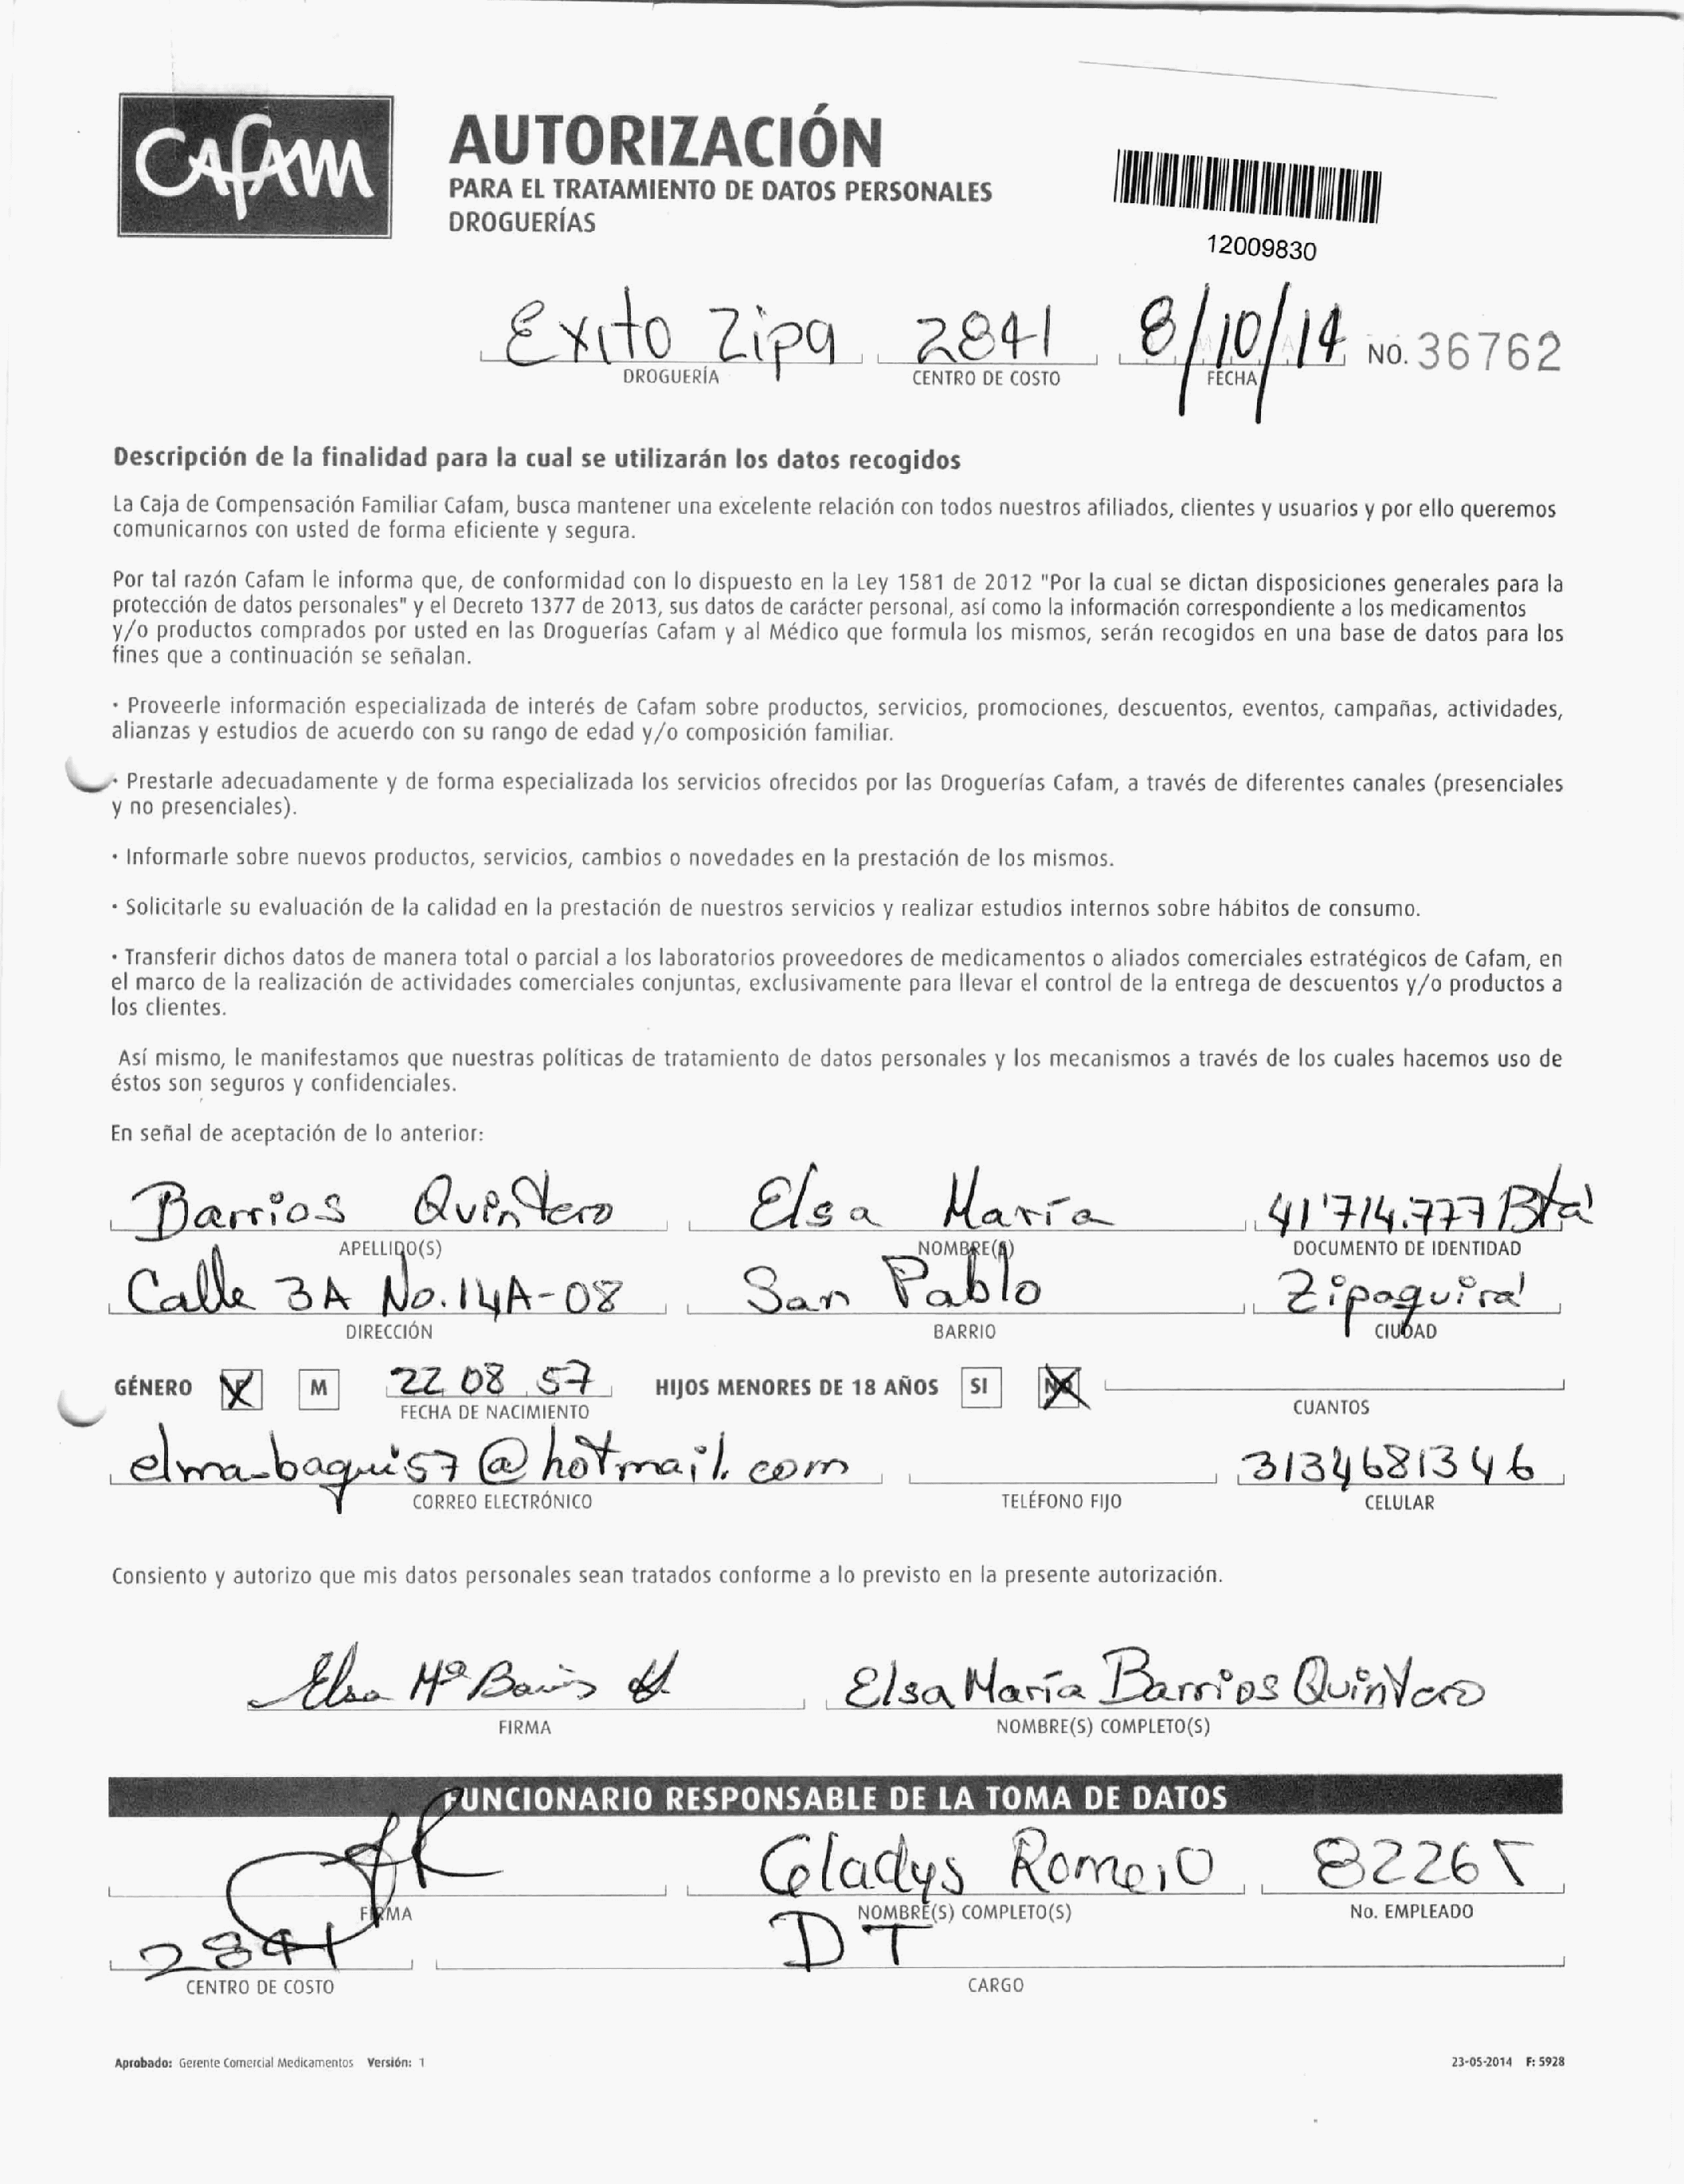 CAFAM
AUTORIZACIÓN
PARA EL TRATAMIENTO DE DATOS PERSONALES
DROGUERÍAS
12009830
Exito Zipa 2841 8/10/14 NO. 36762
DROGUERÍA CENTRO DE COSTO FECHA
Descripción de la finalidad para la cual se utilizarán los datos recogidos
La Caja de Compensación Familiar Cafam, busca mantener una excelente relación con todos nuestros afiliados, clientes y usuarios y por ello queremos
comunicarnos con usted de forma eficiente y segura.
Por tal razón Cafam le informa que, de conformidad con lo dispuesto en la Ley 1581 de 2012 "Por la cual se dictan disposiciones generales para la
protección de datos personales" y el Decreto 1377 de 2013, sus datos de carácter personal, así como la información correspondiente a los medicamentos
y/o productos comprados por usted en las Droguerías Cafam y al Médico que formula los mismos, serán recogidos en una base de datos para los
fines que a continuación se señalan.
· Proveerle información especializada de interés de Cafam sobre productos, servicios, promociones, descuentos, eventos, campañas, actividades,
alianzas y estudios de acuerdo con su rango de edad y/o composición familiar.
· Prestarle adecuadamente y de forma especializada los servicios ofrecidos por las Droguerías Cafam, a través de diferentes canales (presenciales
y no presenciales).
· Informarle sobre nuevos productos, servicios, cambios o novedades en la prestación de los mismos.
· Solicitarle su evaluación de la calidad en la prestación de nuestros servicios y realizar estudios internos sobre hábitos de consumo.
· Transferir dichos datos de manera total o parcial a los laboratorios proveedores de medicamentos o aliados comerciales estratégicos de Cafam, en
el marco de la realización de actividades comerciales conjuntas, exclusivamente para llevar el control de la entrega de descuentos y/o productos a
los clientes.
Así mismo, le manifestamos que nuestras políticas de tratamiento de datos personales y los mecanismos a través de los cuales hacemos uso de
éstos son seguros y confidenciales.
En señal de aceptación de lo anterior:
Barrios Quintero Elsa María 41'714.777 Btá
APELLIDO(S) NOMBRE(S) DOCUMENTO DE IDENTIDAD
Calle 3A No. 14A-08 San Pablo Zipaquirá
DIRECCIÓN BARRIO CIUDAD
GÉNERO X M 22 08 57 HIJOS MENORES DE 18 AÑOS SI NO
FECHA DE NACIMIENTO CUANTOS
elma_baqui57@hotmail.com 3134681346
CORREO ELECTRÓNICO TELÉFONO FIJO CELULAR
Consiento y autorizo que mis datos personales sean tratados conforme a lo previsto en la presente autorización.
Elsa Mª Barrios Elsa María Barrios Quintero
FIRMA NOMBRE(S) COMPLETO(S)
FUNCIONARIO RESPONSABLE DE LA TOMA DE DATOS
Gladys Romero 82265
FIRMA NOMBRE(S) COMPLETO(S) No. EMPLEADO
2841 DT
CENTRO DE COSTO CARGO
Aprobado: Gerente Comercial Medicamentos Versión: 1 23-05-2014 F: 5928